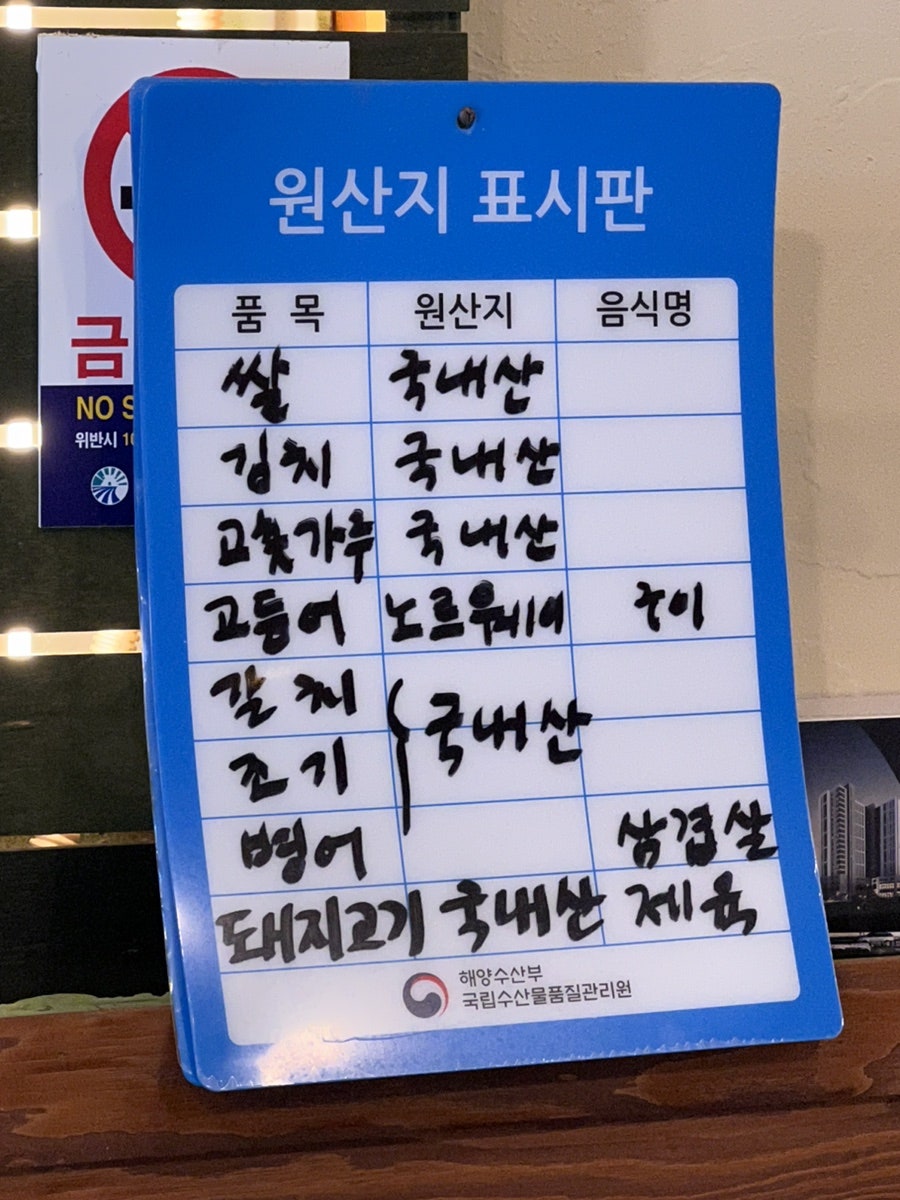 원산지 표시판
품 목 원산지 음식명
쌀 국내산
김치 국내산
고춧가루 국내산
고등어 노르웨이 구이
갈치
국내산
조기
병어 삼겹살
돼지고기 국내산 제육
해양수산부
국립수산물품질관리원
금
NO S
위반시 10